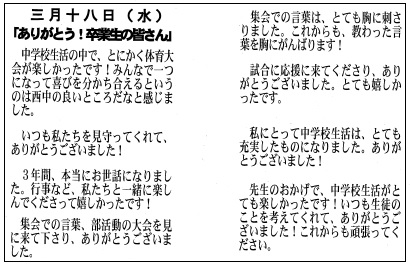 三月十八日（水）
「ありがとう！卒業生の皆さん」
中学校生活の中で、とにかく体育大
会が楽しかったです！みんなで一つ
になって喜びを分かち合えるという
のは西中の良いところだなと感じま
した。
いつも私たちを見守ってくれて、
ありがとうございました！
３年間、本当にお世話になりまし
た。行事など、私たちと一緒に楽し
んでくださって嬉しかったです！
集会での言葉、部活動の大会を見
に来て下さり、ありがとうございま
した。
集会での言葉は、とても胸に刺さ
りました。これからも、教わった言
葉を胸にがんばります！
試合に応援に来てくださり、あり
がとうございました。とても嬉しか
ったです。
私にとって中学校生活は、とても
充実したものになりました。ありが
とうございました！
先生のおかげで、中学校生活がと
ても楽しかったです！いつも生徒の
ことを考えてくれて、ありがとうご
ざいました！これからも頑張ってく
ださい。